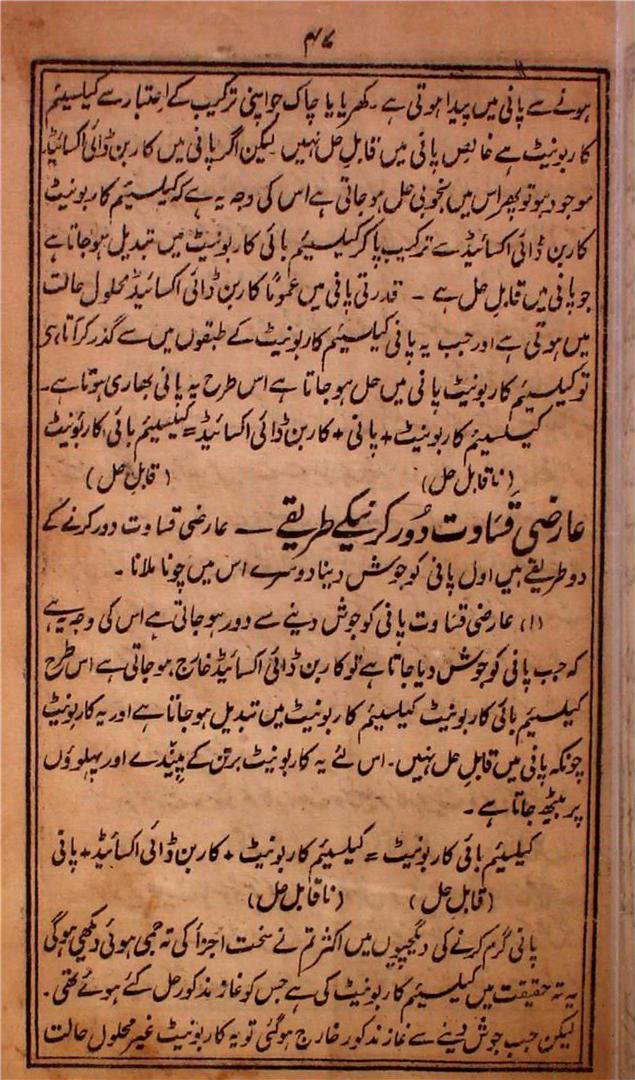 ۴۷
ہونے سے پانی میں پیدا ہوتی ہے ۔ کھریا یا چاک جو اپنی ترکیب کے اعتبار سے کیلسیئم
کاربونیٹ ہے خالص پانی میں قابلِ حل نہیں لیکن اگر پانی میں کاربن ڈائی اکسائیڈ
موجود ہو تو پھر اس میں بخوبی حل ہو جاتی ہے اس کی وجہ یہ ہے کہ کیلسیئم کاربونیٹ
کاربن ڈائی اکسائیڈ سے ترکیب پا کر کیلسیئم بائی کاربونیٹ میں تبدیل ہو جاتا ہے
جو پانی میں قابلِ حل ہے ۔ قدرتی پانی میں عموماً کاربن ڈائی اکسائیڈ محلول حالت
میں ہوتی ہے اور جب یہ پانی کیلسیئم کاربونیٹ کے طبقوں میں سے گذر کر آتا ہی
تو کیلسیئم کاربونیٹ پانی میں حل ہو جاتا ہے اس طرح یہ پانی بھاری ہوتا ہے ۔
کیلسیئم کاربونیٹ + پانی + کاربن ڈائی اکسائیڈ = کیلسیئم بائی کاربونیٹ
(ناقابل حل) (قابلِ حل)
عارضی قساوت دُور کرنیکے طریقے — عارضی قساوت دور کرنے کے
دو طریقے ہیں اول پانی کو جوش دینا دوسرے اس میں چونا ملانا ۔
(۱) عارضی قساوت پانی کو جوش دینے سے دور ہو جاتی ہے اس کی وجہ یہ ہے
کہ جب پانی کو جوش دیا جاتا ہے تو کاربن ڈائی اکسائیڈ خارج ہو جاتی ہے اس طرح
کیلسیئم بائی کاربونیٹ کیلسیئم کاربونیٹ میں تبدیل ہو جاتا ہے اور یہ کاربونیٹ
چونکہ پانی میں قابلِ حل نہیں ۔ اس لئے یہ کاربونیٹ برتن کے پیندے اور پہلوؤں
پر بیٹھ جاتا ہے ۔
کیلسیئم بائی کاربونیٹ = کیلسیئم کاربونیٹ + کاربن ڈائی اکسائیڈ + پانی
(قابل حل) (ناقابل حل)
پانی گرم کرنے کی دیگچیوں میں اکثر تم نے سخت اجزأ کی تہ جمی ہوئی دیکھی ہوگی
یہ تہ حقیقت میں کیلسیئم کاربونیٹ کی ہے جس کو غاز مذکور حل کئے ہوئے تھی ۔
لیکن جب جوش دینے سے غاز مذکور خارج ہوگئی تو یہ کاربونیٹ غیر محلول حالت